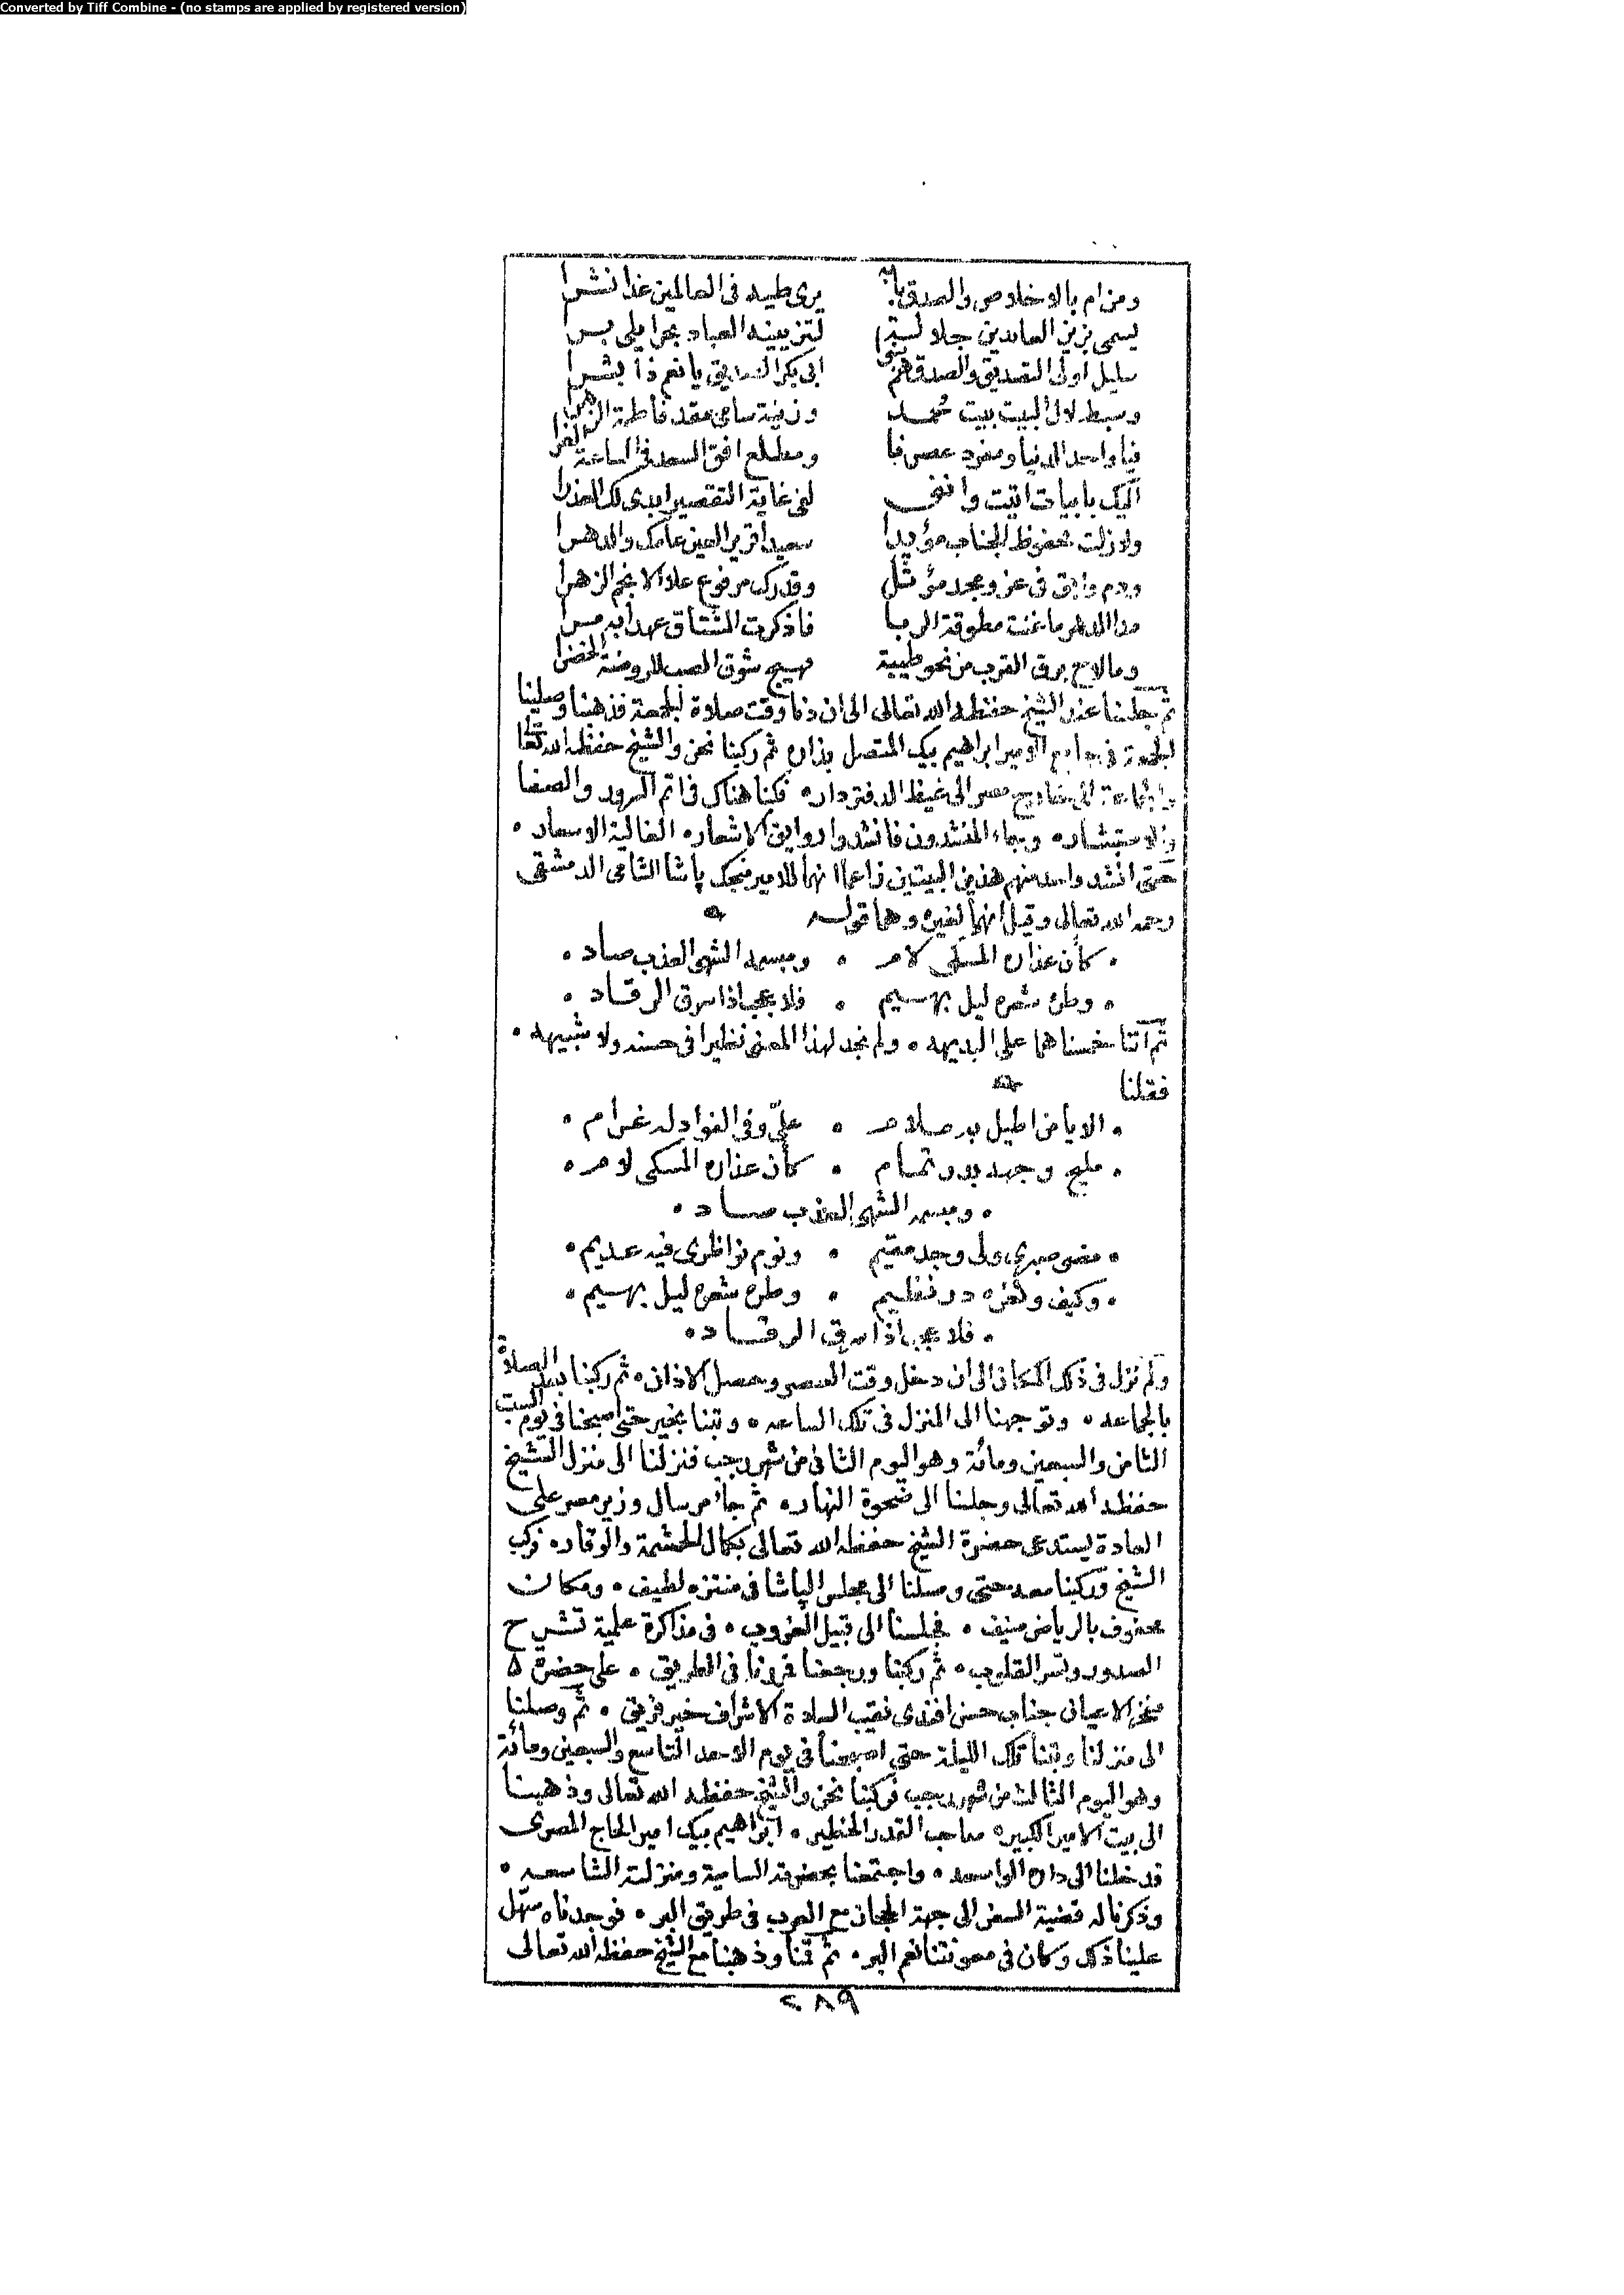 Converted by Tiff Combine - (no stamps are applied by registered version)
ومن ام بالاخلاص والصدق بابه يرى طيبه فى العالمين غدا نشرا
يسمى بزين العابدين جلالة لتزيينه العباد
سليل اولى التصديق والصدق ابى بكر الصديق يا نعم ذا بشرا
وسبط لال البيت بيت محمد وزينة سامى عقد فاطمة الزهرا
فيا واحد الدنيا ومفرد عصرنا ومطلع افق السعد فى الساعة الغرا
اليك بابيات اتيت واننى لفى غاية التقصير ابدى لك العذرا
ولا زلت محفوظ الجناب مؤيدا سعيدا قرير العين عامك والدهرا
ودم وابق فى عز ومجد مؤثل وقدرك مرفوع علا الانجم الزهرا
مدا الدهر ما غنت مطوقة الربا فاذكرت المشتاق عهدا به مرا
وما لاح برق القرب من نحو طيبة فهيج شوق الصب للروضة الخضرا
ثم جلسنا عند الشيخ حفظه الله تعالى الى ان دنا وقت صلاة الجمعة فذهبنا وصلينا
الجمعة فى جامع الامير ابراهيم بيك المتصل بداره ثم ركبنا نحن والشيخ حفظه الله تعالى
والجماعة الى خارج مصر الى غيط الدفتردار فكنا هناك فى اتم السرور والصفا
والاستبشار وجاء المنشدون فانشدوا روايق الاشعار الغالية الاسعار
حتى انشد واحد منهم هذين البيتين زاعما انهما للامير منجك پاشا الشامى الدمشقى
رحمه الله تعالى وقيل انهما لغيره وهما قوله
كأن عذاره المسكى لام ومبسمه الشهى العذب صاد
وطرة شعره ليل بهيم فلا عجب اذا سرق الرقاد
ثم اننا خمسناهما على البديهه ولم نجد لهذا المعنى نظيرا فى حسنه ولا شبيهه
فقلنا
الا يا من اطيل به ملام علىّ وفى الفؤاد له غرام
مليح وجهه بدر تمام كأن عذاره المسكى لام
ومبسمه الشهى العذب صاد
مضى صبرى ولى وجد مقيم ونوم نواظرى فيه عديم
وكيف وثغره در نظيم وطرة شعره ليل بهيم
فلا عجب اذا سرق الرقاد
ولم نزل فى ذلك المكان الى ان دخل وقت العصر وحصل الاذان ثم ركبنا بعد الصلاة
بالجماعه وتوجهنا الى المنزل فى تلك الساعه وبتنا بخير حتى اصبحنا فى يوم السبت
الثامن والسبعين ومائة وهو اليوم الثانى من شهر رجب فنزلنا الى منزل الشيخ
حفظه الله تعالى وجلسنا الى ضحوة النهار ثم جاء مرسال وزير مصر على
العادة يستدعى حضرة الشيخ حفظه الله تعالى بكمال الحشمة والوقار فركب
الشيخ وركبنا معه حتى وصلنا الى مجلس الپاشا فى منتزه لطيف ومكان
محفوف بالرياض منيف فجلسنا الى قبيل الغروب فى مذاكرة علمية تشرح
الصدور وتسر القلوب ثم ركبنا ورجعنا فمررنا فى الطريق على حضرة
مفخر الاعيان جناب حسن افندى نقيب السادة الاشراف خير فريق ثم وصلنا
الى منزلنا وبتنا تلك الليلة حتى اصبحنا فى يوم الاحد التاسع والسبعين ومائة
وهو اليوم الثالث من شهر رجب فركبنا نحن والشيخ حفظه الله تعالى وذهبنا
الى بيت الامير الكبير صاحب القدر الخطير ابراهيم بيك امير الحاج المصرى
فدخلنا الى داره الواسعه واجتمعنا بحضرته السامية ومنزلته الشاسعه
وذكرنا له قضية السفر الى جهة الحجاز مع العرب فى طريق البر فوجدناه سهّل
علينا ذلك وكان فى معونتنا نعم البر ثم قمنا وذهبنا مع الشيخ حفظه الله تعالى
٢٨٩